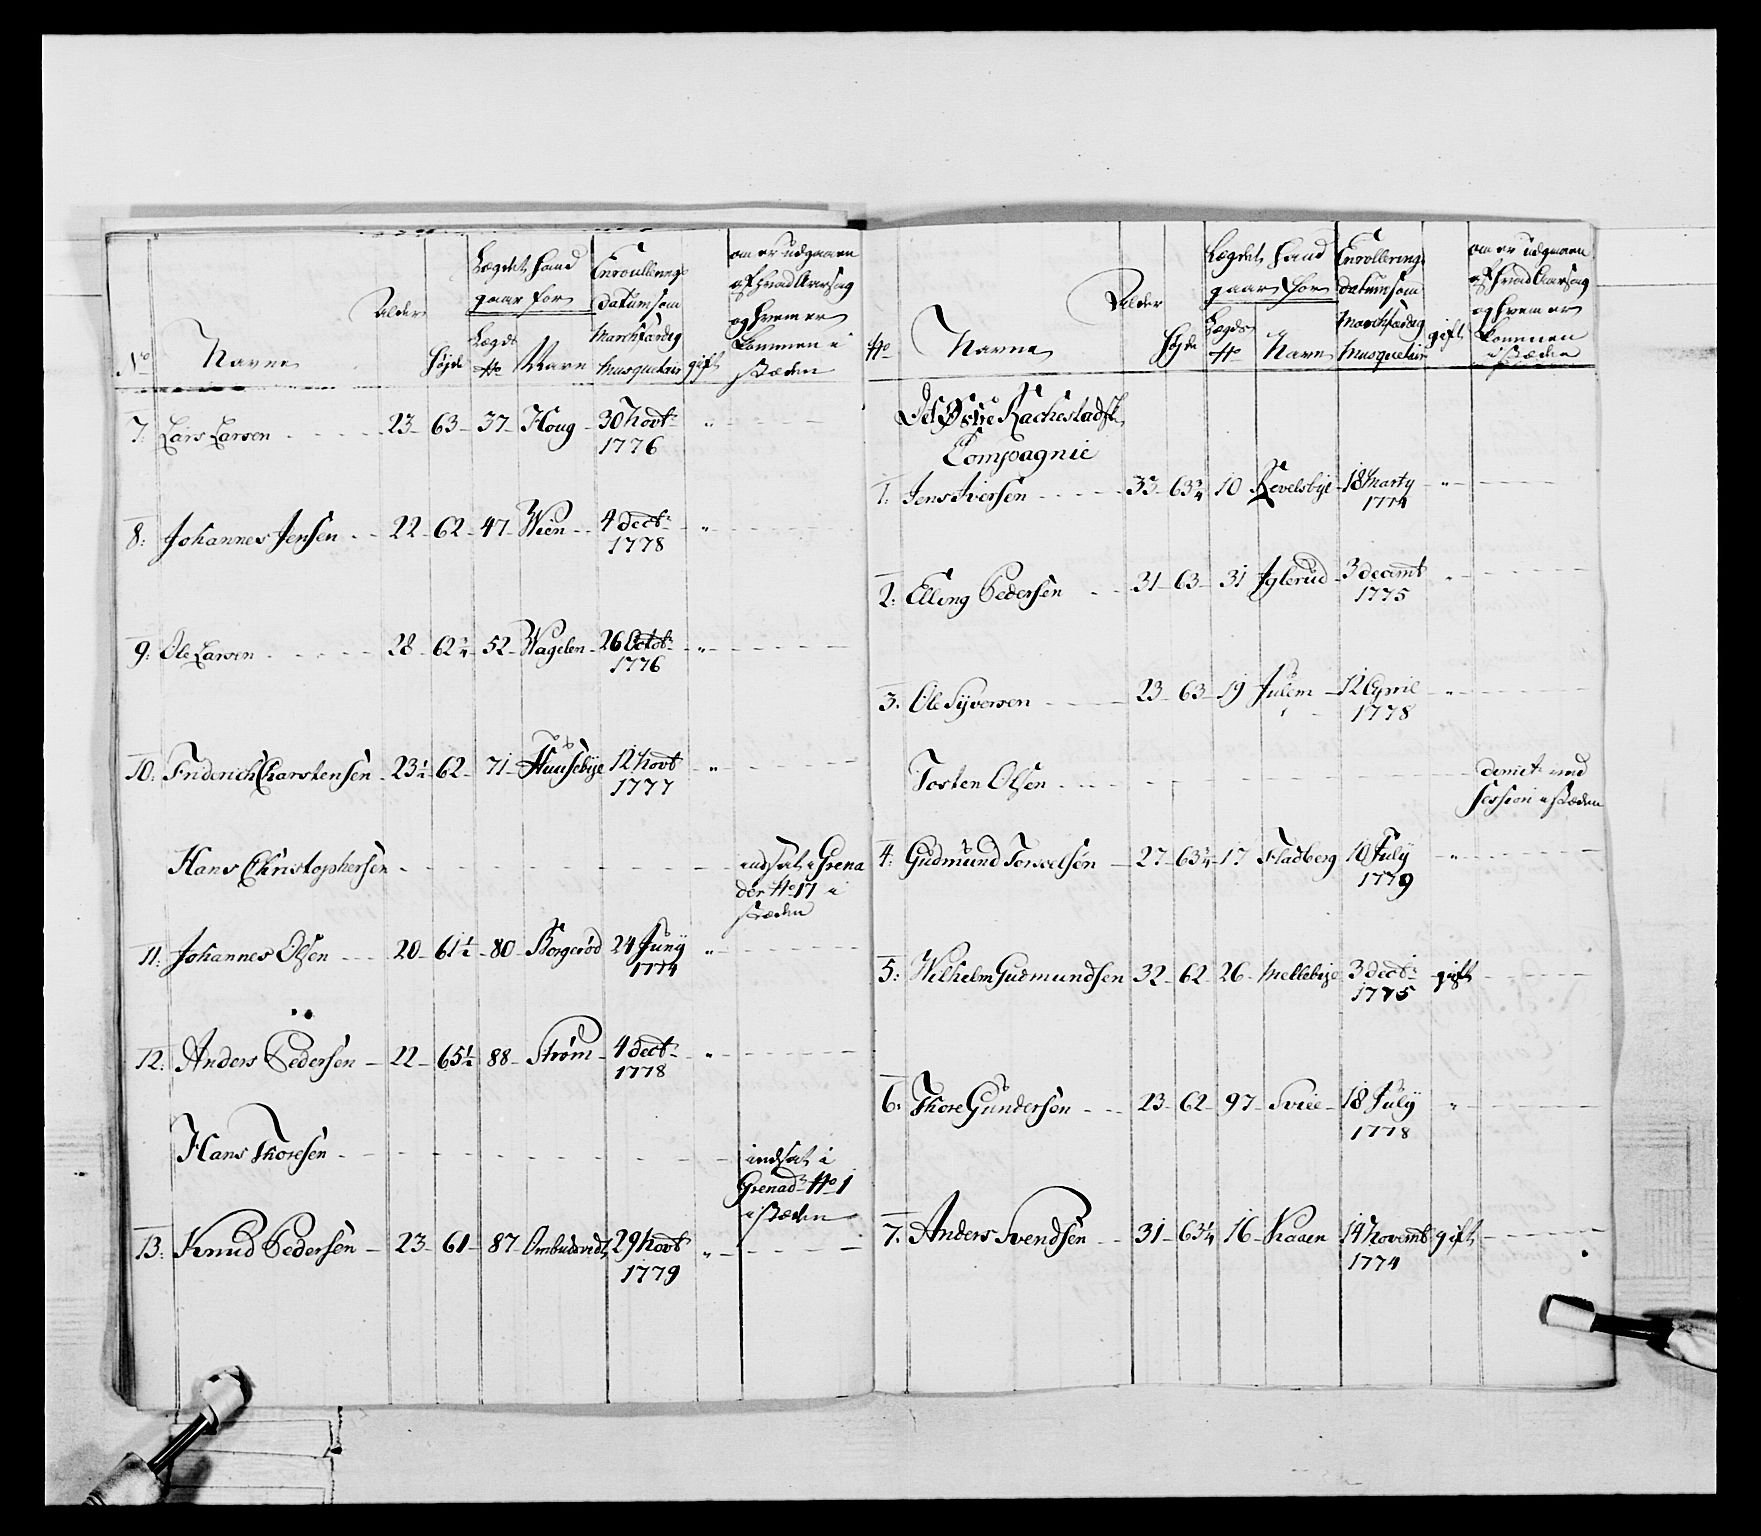 No
Navne
Alder
Høyde
Lægdet hand
gaar for
Lægds
No
Navn
Enroullerings
datum som
Marchfærdig
Musqueteer
gift
om er udgaaen
af hvad Aarsag
og hvem er
kommen i
stæden
7: Lars Larsen 23 63 37 Houg 30 Novb: "
1776
8: Johannes Jensen 22 62 47 Wien 4 Decb: "
1778
9: Ole Larsen 28 62 3/4 52 Wagelen 26 Octob: "
1776
10: Friderich Charstensen 23 1/2 62 71 Huusebye 12 Novb "
1777
Hans Christophersen indsat i Grena
der No 17 i
stæden
11: Johannes Olsen 20 61 1/2 80 Borgerød 24 Juny "
1774
12: Anders Pedersen 22 65 1/2 88 Strøm 4 Decb: "
1778
Hans Thoresen indsat i
Grenad: No 1
i stæden
13: Knud Pedersen 23 61 87 Ombudsvedt 29 Novb "
1779
No
Navne
Alder
Høyde
Lægdet hand
gaar for
Lægds
No
Navn
Enrollerings
datum som
Marchfærdig
Musqueteir
gift
om er udgaaen
af hvad Aarsag
og hvem er
kommen
i stæden
Det Østre Rachestadske
Compagnie
1. Jens Iversen 33 63 3/4 10 Revelsbye 18 Marty "
1774
2: Elling Pedersen 31 63 31 Iglerud 3 Decembt "
1775
3. Ole Syversen 23 63 19 Julem 12 Aprile "
1778
Torsten Olsen ved
Session i stæden
4: Gudmund Torvelsen 27 63 3/4 17 Fladberg 10 July "
1779
5: Wilhelm Gudmundsen 32 62 26 Mellebye 3 Decb: gift
1775
6. Thore Gundersen 23 62 97 Sviie 18 July "
1778
7. Anders Svendsen 31 63 1/4 16 Kaaen 14 Novembr gift
1774